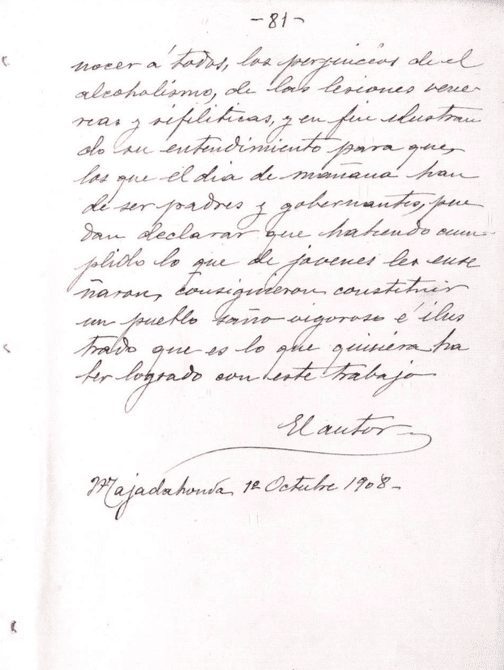 -81-
nocer á todos, los perjuicios de el
alcoholismo, de las lesiones vene-
reas y sifiliticas, y en fin ilustran
do su entendimiento para que,
los que el dia de mañana han
de ser padres y gobernantes, pue
dan declarar que habiendo cum-
plido lo que de jovenes les ense
ñaron, consiguieron constituir
un pueblo sano vigoroso é ilus
trado que es lo que quisiera ha
ber logrado con este trabajo
El autor
Majadahonda 12 Octubre 1908-